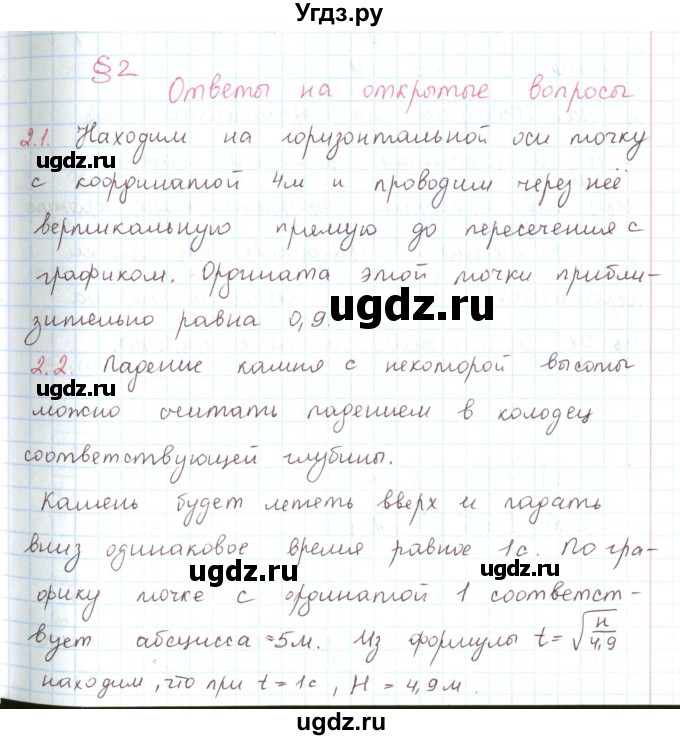 ©ugdz.ру
§2
Ответы на открытые вопросы
2.1. Находим на горизонтальной оси точку
ugdz.ru
с координатой 4м и проводим через неё
вертикальную прямую до пересечения с
графиком. Ордината этой точки прибли-
ugdz.ru
зительно равна 0,9.
2.2. Падение камня с некоторой высоты
ugdz.ru
можно считать падением в колодец
соответствующей глубины.
Камень будет лететь вверх и падать
вниз одинаковое время равное 1с. По гра-
ugdz.ru ugdz.ru
фику точке с ординатой 1 соответст-
вует абсцисса ≈5м. Из формулы t = √H/4,9
находим, что при t = 1с, H = 4,9м.
ugdz.ru